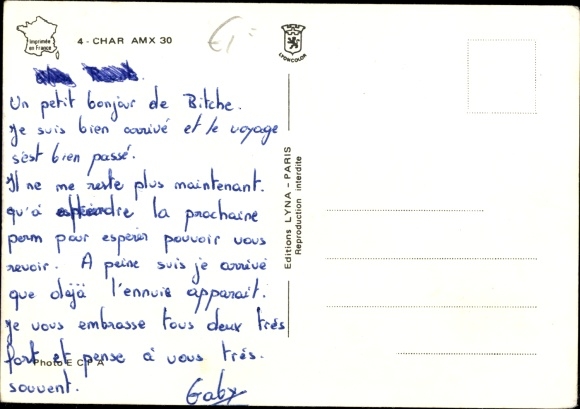 Imprimée
en France
4 - CHAR AMX 30
€1
LYONCOLOR
Un petit bonjour de Bitche.
Je suis bien arrivé et le voyage
s'est bien passé.
Il ne me reste plus maintenant.
qu'à la prochaine
perm pour espérer pouvoir vous
revoir. A peine suis je arrivé
que déjà l'ennuie apparait.
Je vous embrasse tous deux trés
fort et pense à vous trés.
Photo E C P A
souvent.
Gaby
Editions LYNA - PARIS
Reproduction interdite